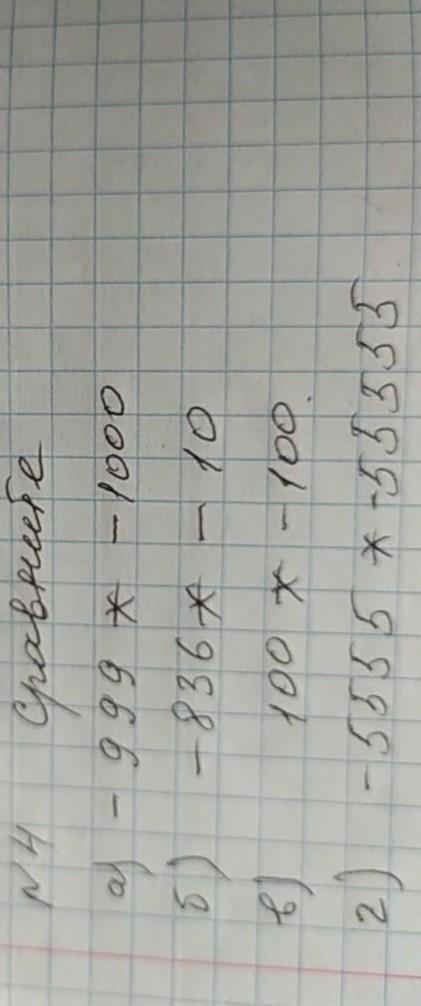 №4 Сравните
а) - 999 * - 1000
б) - 836 * - 10
в) 100 * - 100.
г) - 5555 * - 55555